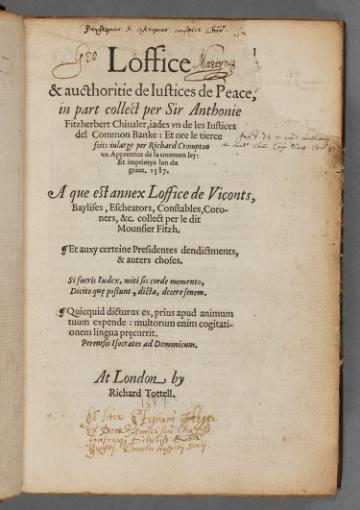 Geo Martyn
Loffice
& aucthoritie de Iustices de Peace,
in part collect per Sir Anthonie
Fitzherbert Chiualer, iades vn de les Iustices
del Common Banke: Et ore le tierce
foits inlarge per Richard Crompton
vn Apprentice de la common ley:
Et imprimye lan du
grace, 1587.
A que est annex Loffice de Viconts,
Baylifes, Escheators, Constables, Coro-
ners, &c. collect per le dit
Mounsier Fitzh.
¶Et auxy certeine Presidentes dendictments,
& auters choses.
Si fueris Iudex, miti sis corde memento,
Dicito quę possunt, dicta, decere senem.
¶Quicquid dicturus es, prius apud animum
tuum expende: multorum enim cogitati-
onem lingua pręcurrit.
Isocrates ad Demonicum.
At London by
Richard Tottell.